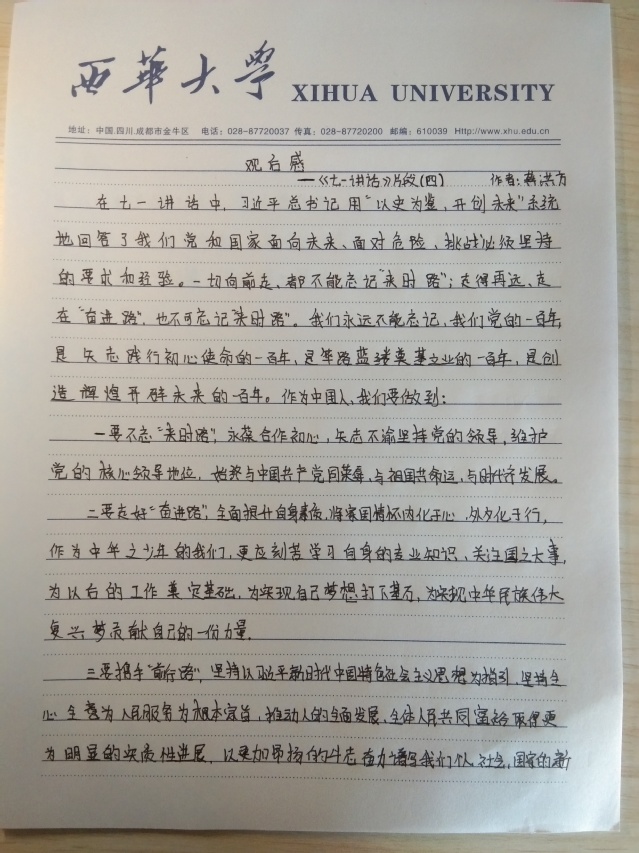 西華大学 XIHUA UNIVERSITY
地址：中国.四川.成都市金牛区 电话：028-87720037 传真：028-87720200 邮编：610039 Http://www.xhu.edu.cn
观后感
—《七一讲话》片段(四) 作者：蒋洪方
在七一讲话中，习近平总书记用“以史为鉴，开创未来”系统
地回答了我们党和国家面向未来、面对危险、挑战必须坚持
的要求和经验。一切向前走、都不能忘记“来时路”；走得再远、走
在“奋进路”，也不可忘记“来时路”。我们永远不能忘记，我们党的一百年，
是矢志践行初心使命的一百年，是筚路蓝缕奠基立业的一百年，是创
造辉煌开辟未来的一百年。作为中国人，我们要做到：
一要不忘“来时路”，永葆合作初心，矢志不渝坚持党的领导，维护
党的核心领导地位，始终与中国共产党同荣辱、与祖国共命运，与时代齐发展。
二要走好“奋进路”，全面提升自身素质，将家国情怀内化于心，外化于行，
作为中华之少年的我们，更应刻苦学习自身的专业知识、关注国之大事，
为以后的工作奠定基础，为实现自己梦想打下基石，为实现中华民族伟大
复兴梦贡献自己的一份力量.
三要携手“前行路”，坚持以习近平新时代中国特色社会主义思想为指引，坚持全
心全意为人民服务为根本宗旨，推动人的全面发展、全体人民共同富裕取得更
为明显的实质性进展，以更加昂扬的生态奋力谱写我们个人、社会、国家的新